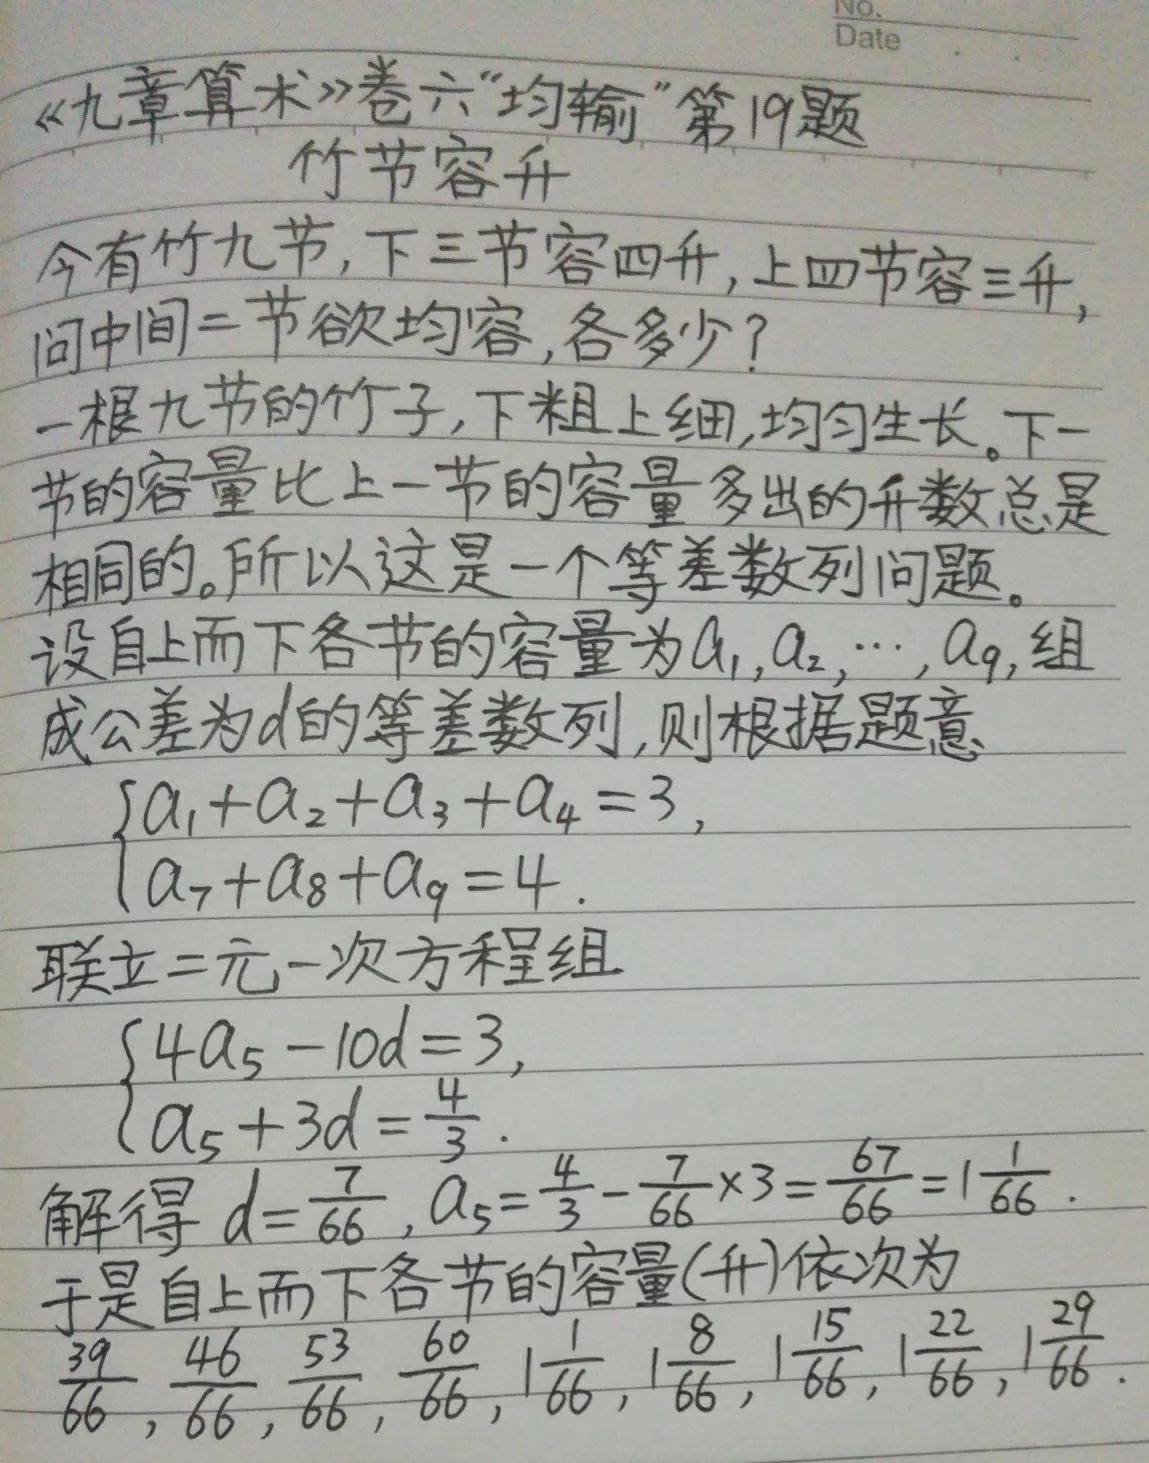 No.
Date
《九章算术》卷六“均输”第19题
竹节容升
今有竹九节,下三节容四升,上四节容三升,
问中间二节欲均容,各多少?
一根九节的竹子,下粗上细,均匀生长。下一
节的容量比上一节的容量多出的升数总是
相同的。所以这是一个等差数列问题。
设自上而下各节的容量为a₁,a₂,…,a₉,组
成公差为d的等差数列,则根据题意
{a₁+a₂+a₃+a₄=3,
a₇+a₈+a₉=4.
联立二元一次方程组
{4a₅-10d=3,
a₅+3d=4/3.
解得 d=7/66,a₅=4/3-7/66×3=67/66=1 1/66.
于是自上而下各节的容量(升)依次为
39/66,46/66,53/66,60/66,1 1/66,1 8/66,1 15/66,1 22/66,1 29/66.